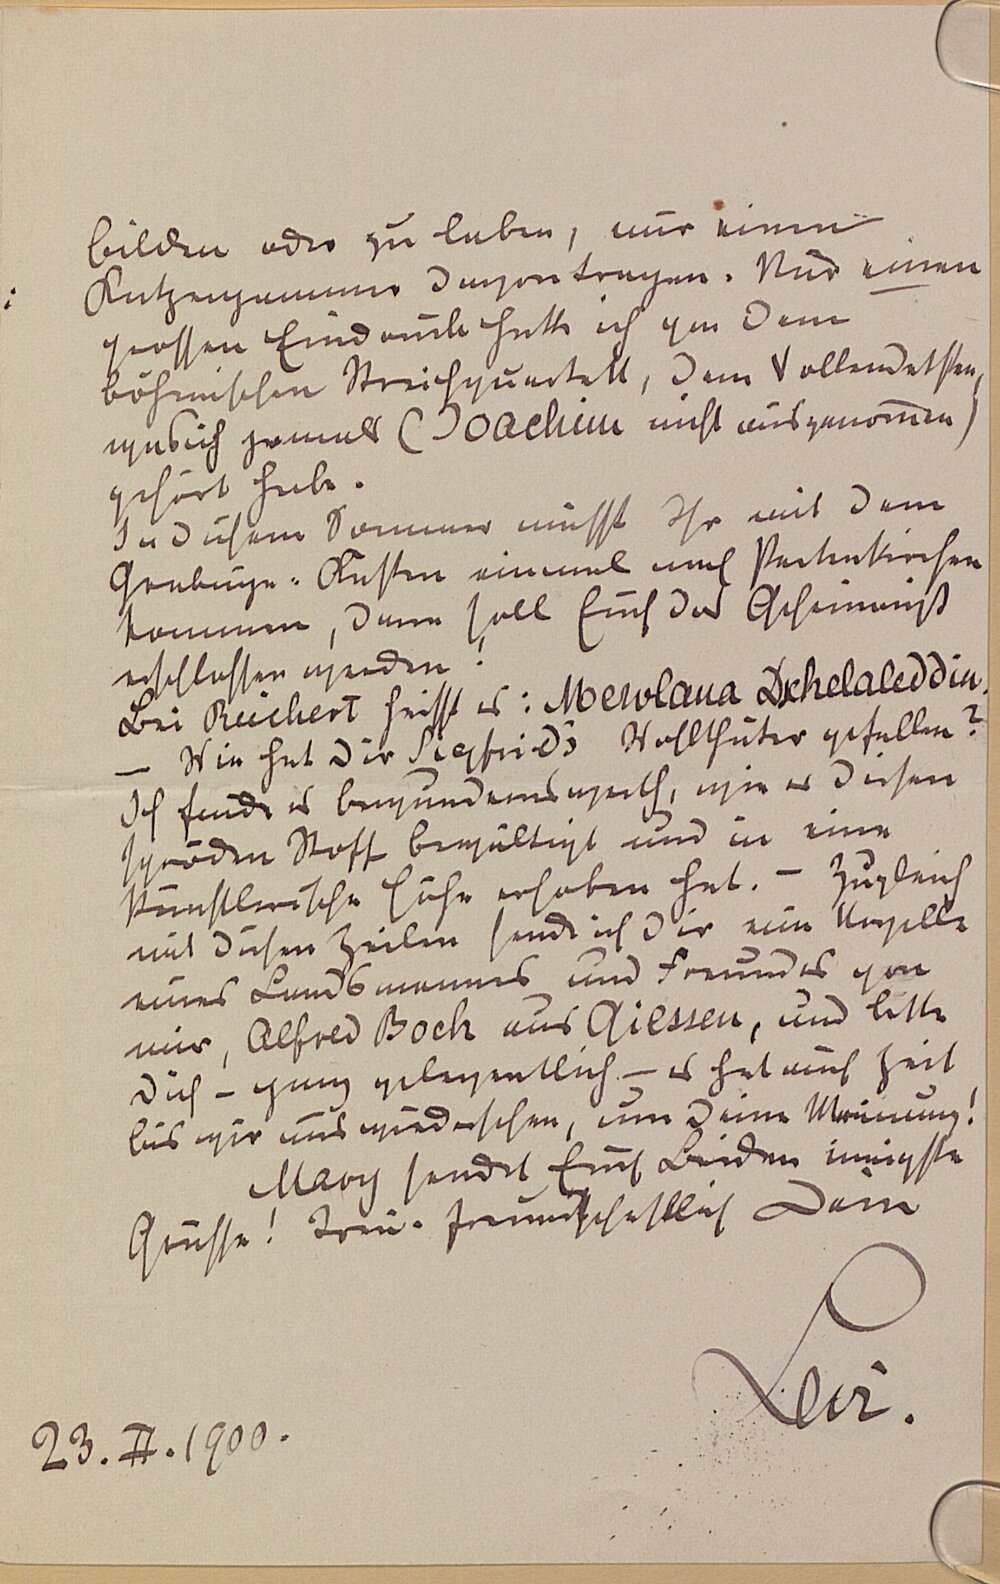 bilden oder zu laben, nur einen
Katzenjammer davontragen. Nur einen
grossen Eindruck hatte ich von dem
böhmischen Streichquartett, dem Vollendetsten,
was ich jemals (Joachim nicht ausgenommen)
gehört habe.
In diesem Sommer müsst Ihr mit dem
Kasten einmal nach Partenkirchen
kommen, dann soll Euch das Geheimniß
erschlossen werden!
Bei Reichert heisst es: Mewlana Dschelaleddin.
— Wie hat Dir Siegfried's Wohlthäter gefallen?
Ich finde es bewundernswerth, wie er diesen
spröden Stoff bewältigt und in eine
künstlerische Höhe erhoben hat. — Zugleich
mit diesen Zeilen sende ich Dir eine Novelle
eines Landsmannes und Freundes von
mir, Alfred Bock aus Giessen, und bitte
Dich – ganz gelegentlich – es hat auch Zeit
bis wir uns wiedersehen, um Deine Meinung!
Mary sendet Euch Beiden innigste
Grüsse! Treu-freundschaftlich Dein
Levi.
23. II. 1900.